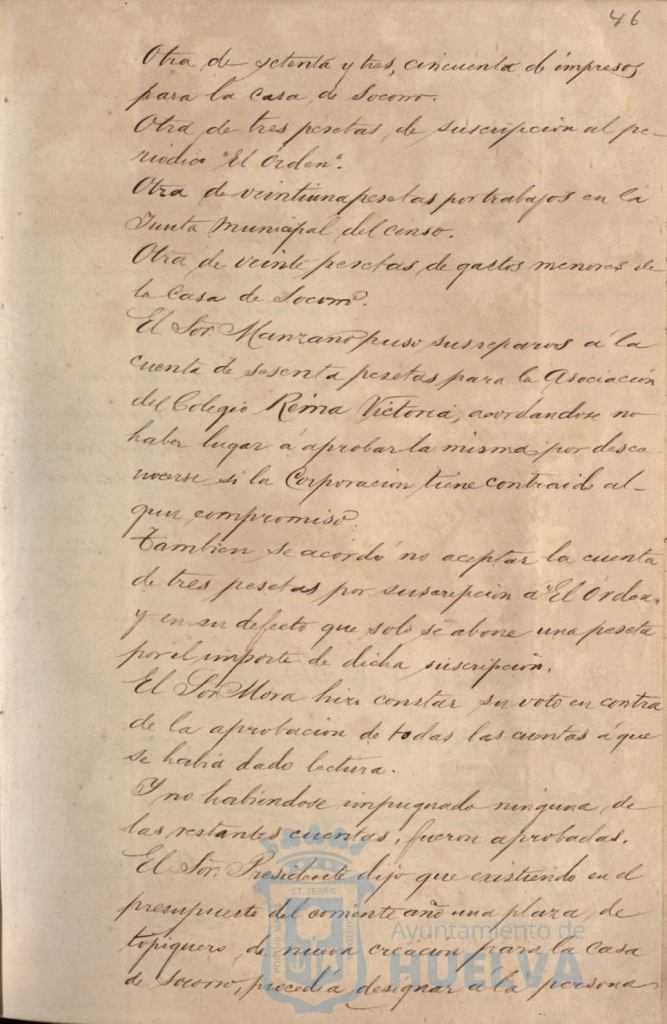 46
Otra de setenta y tres, cincuenta de impresos
para la Casa de Socorro.
Otra de tres pesetas, de suscripción al pe-
riodico "El Orden".
Otra de veintiuna pesetas por trabajos en la
Junta Municipal del censo.
Otra de veinte pesetas, de gastos menores de
la Casa de Socorro.
El Sor. Manzano puso sus reparos á la
cuenta de sesenta pesetas para la Asociación
del Colegio Reina Victoria, acordandose no
haber lugar á aprobar la misma por desco-
nocerse si la Corporacion tiene contraido al-
gun compromiso.
Tambien se acordó no aceptar la cuenta
de tres pesetas por suscripcion á "El Orden"
y en su defecto que solo se abone una peseta
por el importe de dicha suscripción.
El Sor. Mora hizo constar su voto en contra
de la aprobacion de todas las cuentas á que
se habia dado lectura.
Y no habiendose impugnado ninguna de
las restantes cuentas, fueron aprobadas.
El Sor. Presidente dijo que existiendo en el
presupuesto del corriente año una plaza de
topiquero de nueva creacion para la casa
de Socorro, procedia designar á la persona
Ayuntamiento de
HUELVA